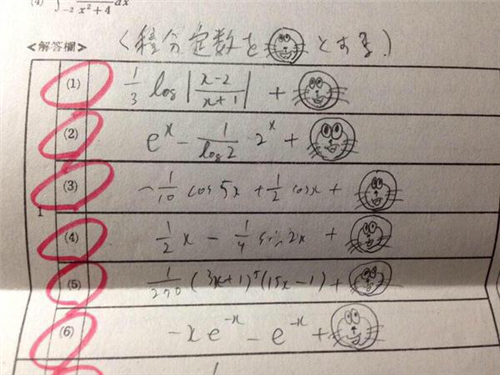 (4) ∫₋₂ x²+4 dx
<解答欄>
(積分定数を とする)
(1) 1/3 log |x-2/x+1| +
(2) eˣ - 1/log2 ・2ˣ +
(3) -1/10 cos5x + 1/2 cosx +
(4) 1/2 x - 1/4 sin2x +
(5) 1/270 (3x+1)⁵(15x-1) +
1
(6) -xe⁻ˣ - e⁻ˣ +